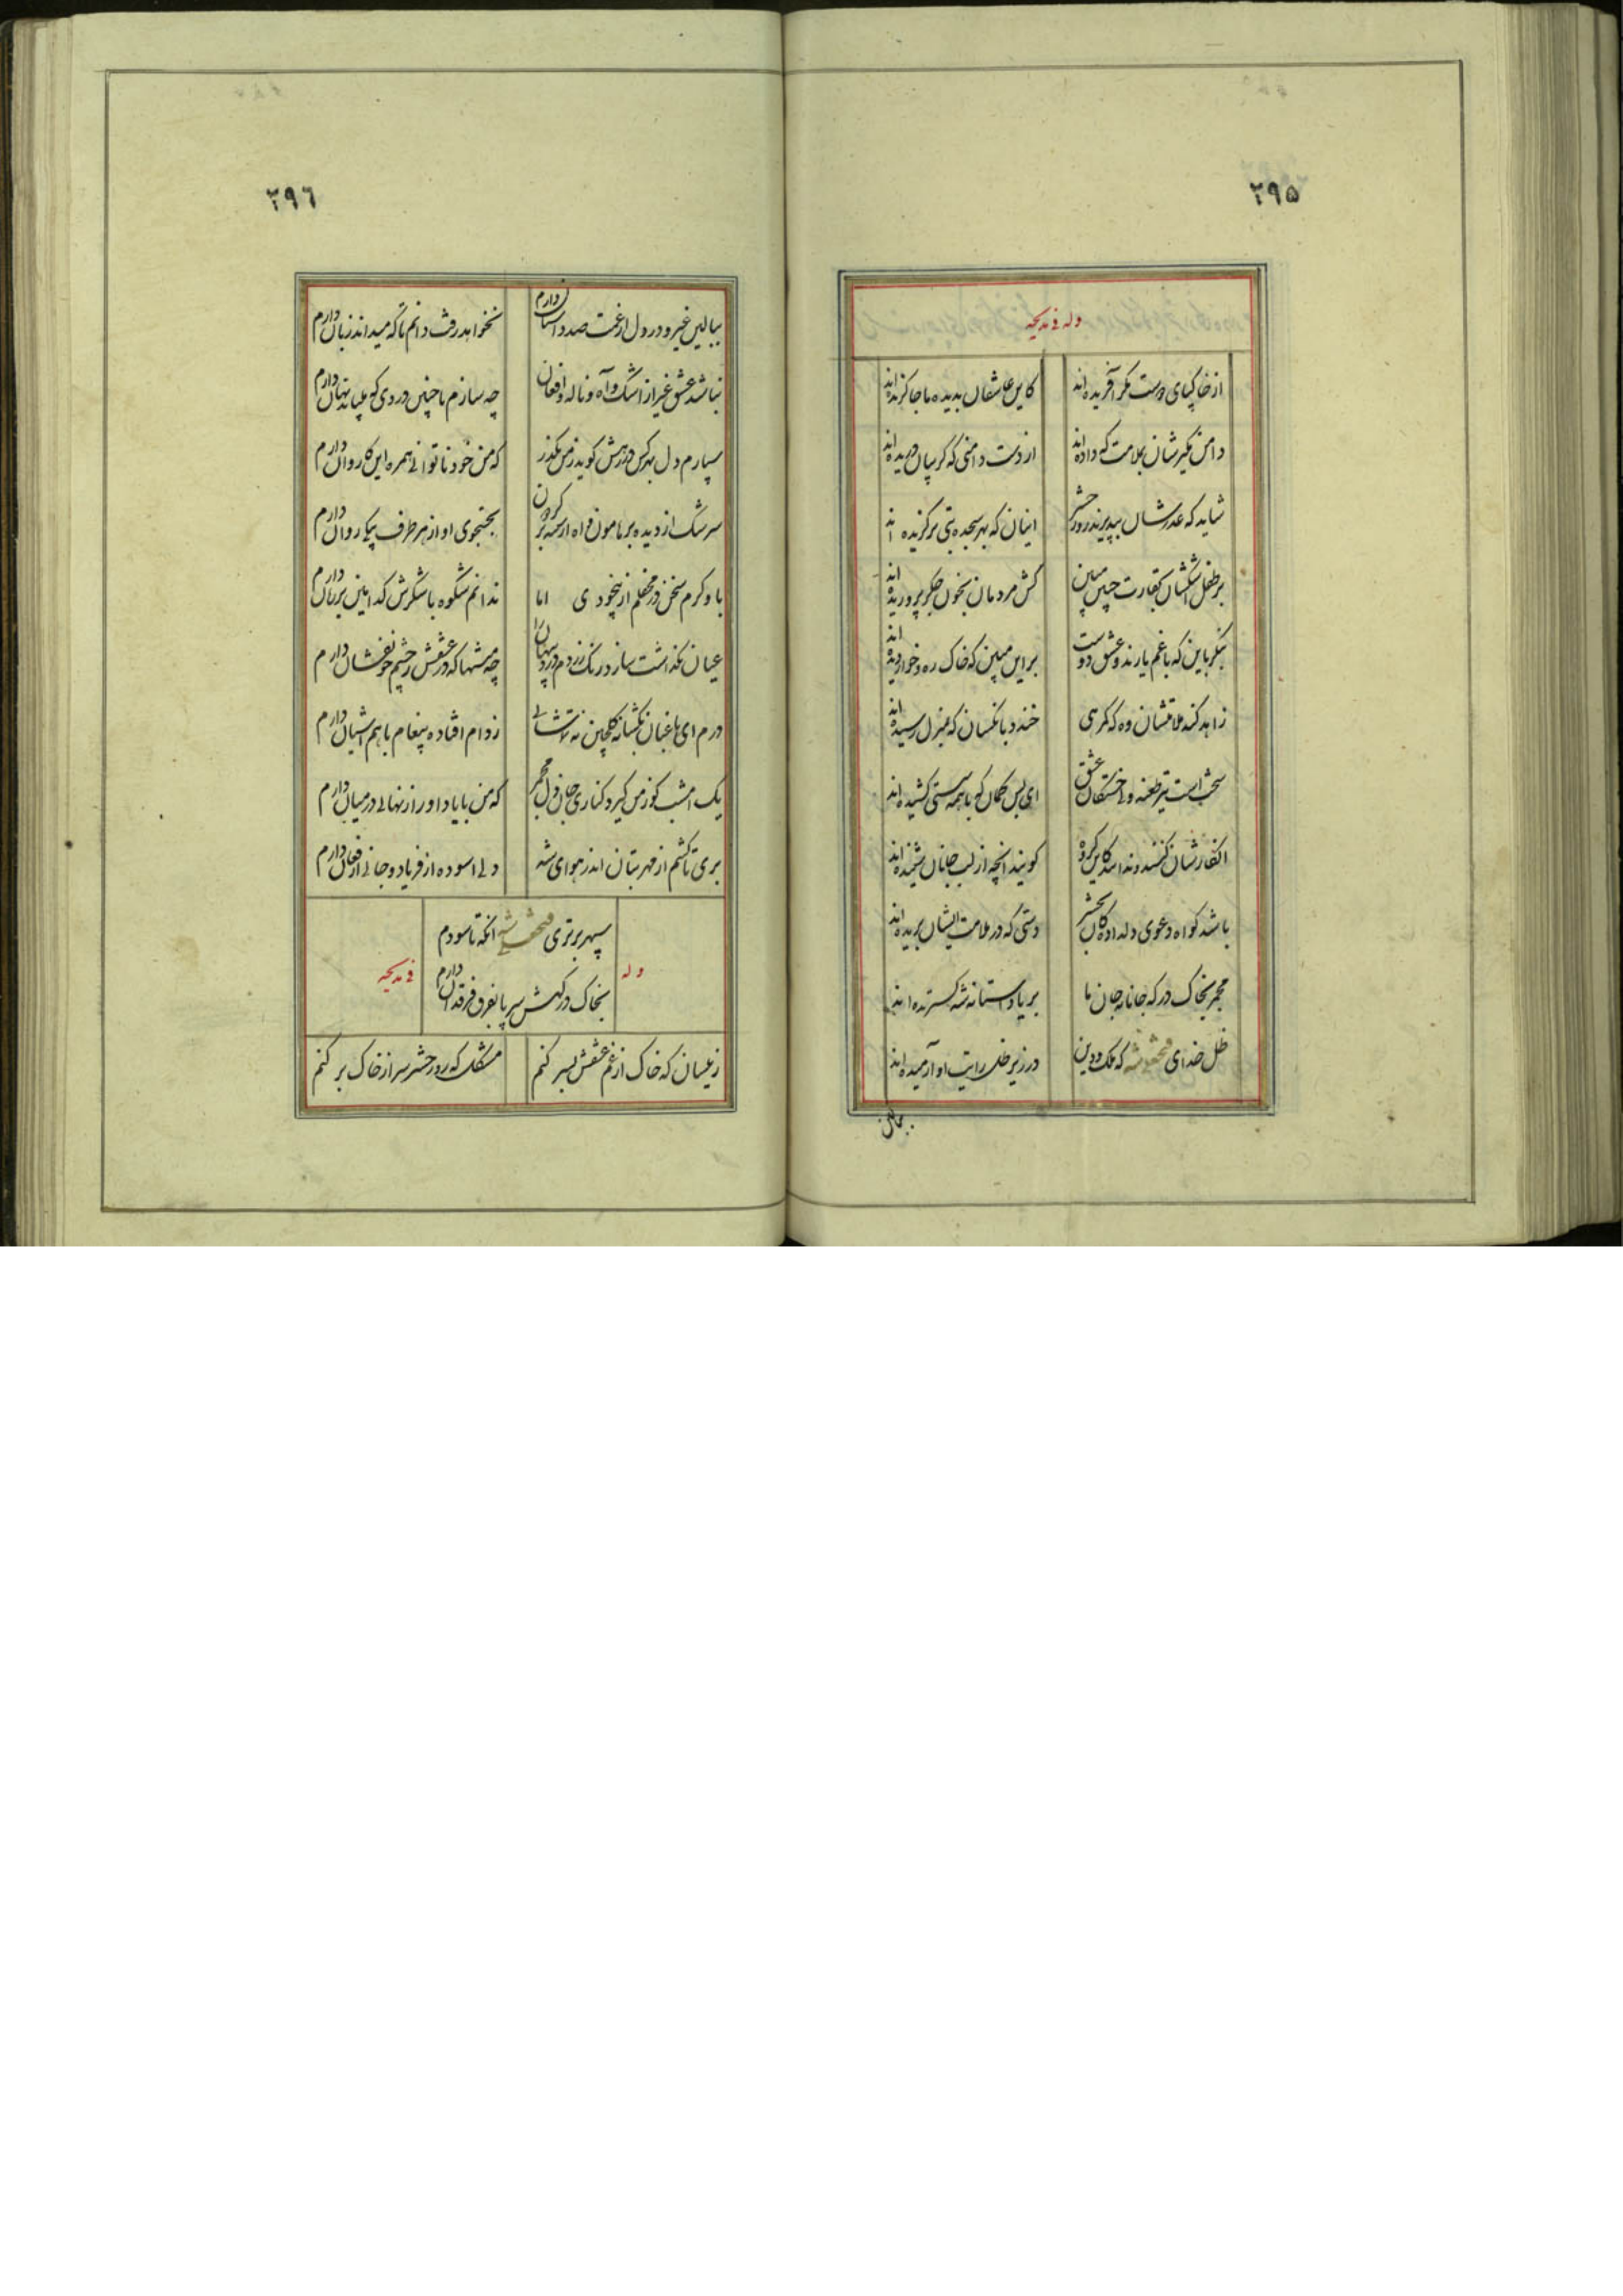 ۲۹۵
وله فی مدیحه
از خاکپای دوست مگر آفریده‌اند
کاین عاشقان بدیده ما جا گزیده‌اند
دامن مگیرشان بملامت که داده‌اند
از دست دامنی که گریبان دریده‌اند
شاید که عذرشان بپذیرند روز حشر
اینان که بهر سجده بتی برگزیده‌اند
بر طفل اشکشان بحقارت مبین
کش مردمان بخون جگر پروریده‌اند
بنگر باین که با غم یارند و عشق دوست
بر این مبین که خاک ره و خوار دیده‌اند
زاهد کند ملامتشان وه که گمرهی
خندد بانکسان که بمنزل رسیده‌اند
سخت است تیر طعنه ولی خستگان عشق
ای بس کمان که با همه سستی کشیده‌اند
انکارشان کنند و ندانند کاین گروه
گویند انچه از لب جانان شنیده‌اند
باشد گواه دعوی دلدادگان بحشر
دستی که در ملامت ایشان بریده‌اند
مجمر بخاک درگه جانانه جان ما
بر یاد آستانه شه گسترده‌اند
ظل خدای فتحعلی شه که ملک و دین
در زیر ظل رایت او آرمیده‌اند
ببالین
۲۹۶
ببالین غیر و در دل از غمت صد داستان دارم
نخواهد رفت دانم تا که میداند زبان دارم
نباشد عشق غیر از اشک و آه و ناله و افغان
چه سازم با چنین دردی که پنهان دارم
سپارم دل بهر کس در رهش گوید ز من بگذر
که من خود ناتوانی همره این کاروان دارم
سرشک از دیده بر هامون و آه از سینه بر گردون
بجستجوی او از هر طرف پیکی روان دارم
باو گرم سخن در محفلم از بیخودی اما
ندانم شکوه یا شکرش کدامین بر زبان دارم
عیان نگذاشت سازد رنگ زردم درد پنهان را
چه منتها که در عشقش ز چشم خونفشان دارم
درم ای باغبان بگشا نه گلچین نه تماشائی
ز دام افتاده پیغام با هم آشیان دارم
یک امشب کو ز من گیرد کناری جان و دل مجمر
که من با یاد او راز نهانی در میان دارم
بری تا گشتم از مهر بتان اندر هوای شه
دلی اسوده از فریاد و جانی از فغان دارم
سپهر برتری فتحعلی شه انکه تا سودم
بخاک درگهش سر پا بفرق فرقدان دارم
وله
فی مدیحه
زینسان که خاک از غم عشقش بسر کنم
مشکل که روز حشر سر از خاک بر کنم